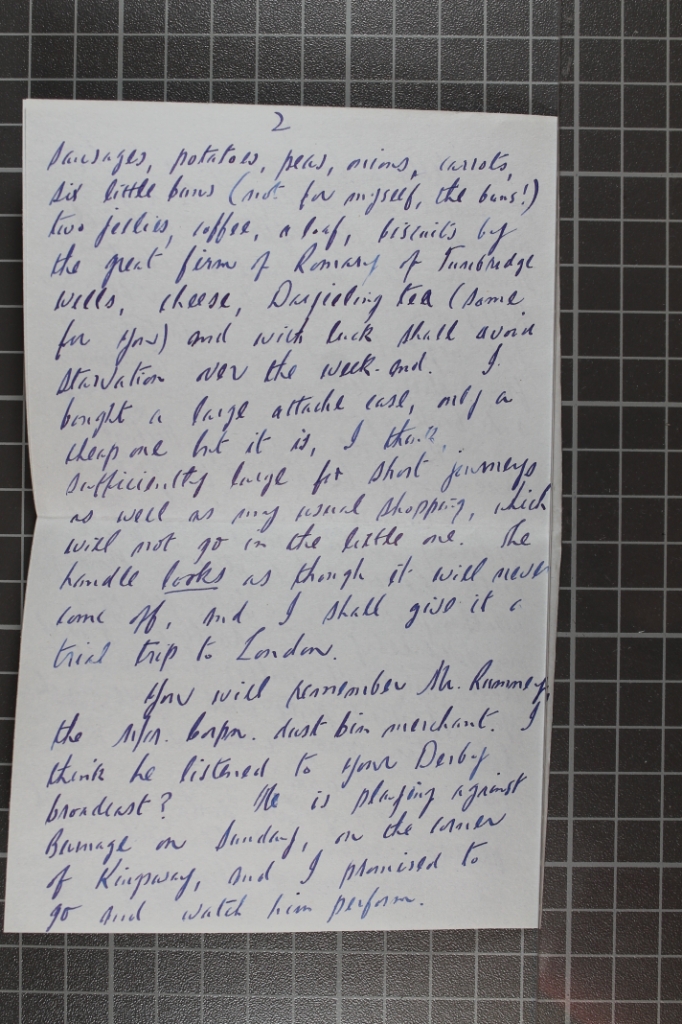 2
sausages, potatoes, peas, onions, carrots,
six little buns (not for myself, the buns!)
two jellies, coffee, a loaf, biscuits by
the great firm of Romary of Tunbridge
Wells, cheese, Darjieling tea (some
for you) and with luck shall avoid
starvation over the week-end. I
bought a large attache case, only a
cheap one but it is, I think,
sufficiently large for short journeys
as well as my usual shopping, which
will not go in the little one. The
handle looks as though it will never
come off, and I shall give it a
trial trip to London.
You will remember Mr. Rumney,
the Corpn. dust bin merchant. I
think he listened to your Derby
broadcast? He is playing against
Bumage on Sunday, on the corner
of Kingsway, and I promised to
go and watch him perform.